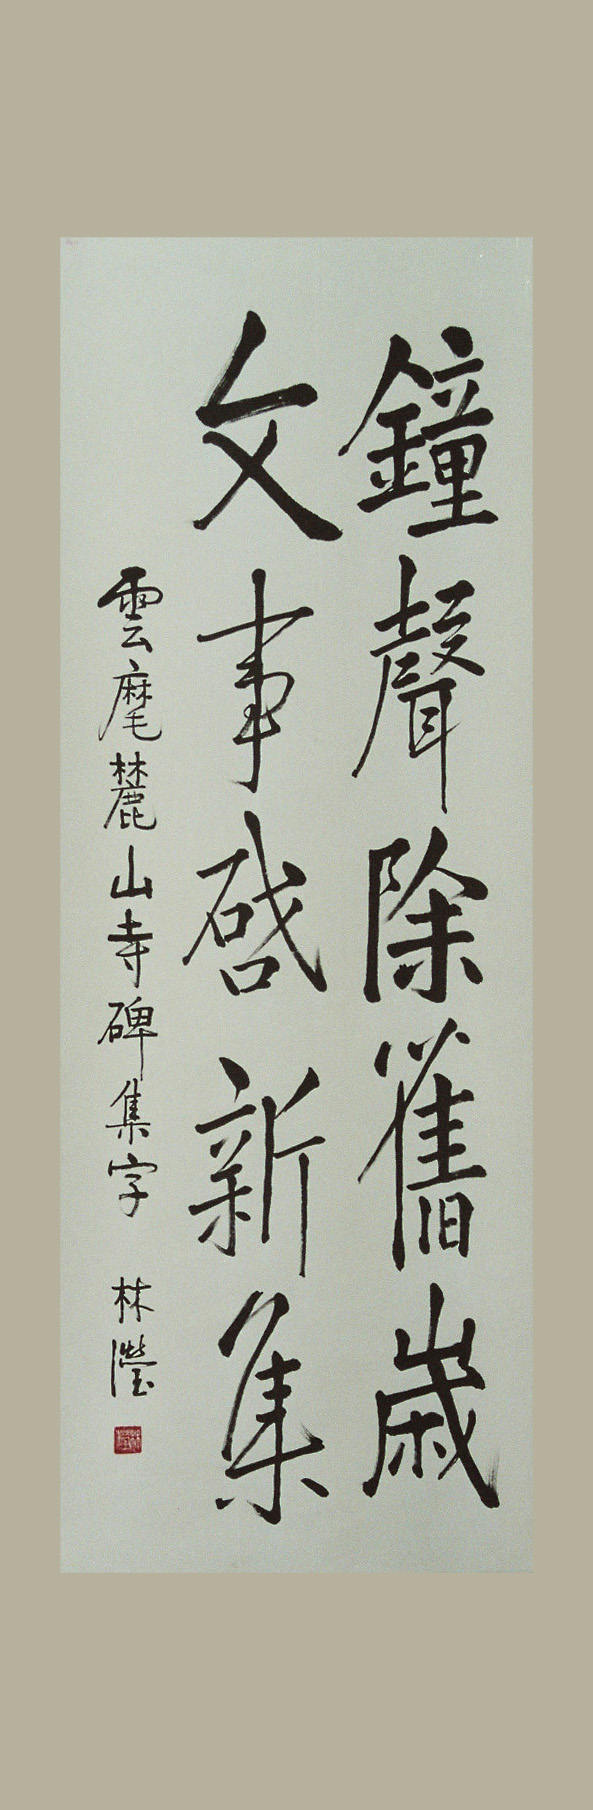 鐘聲除舊歲
文事啓新集
雲麾麓山寺碑集字 林瀅